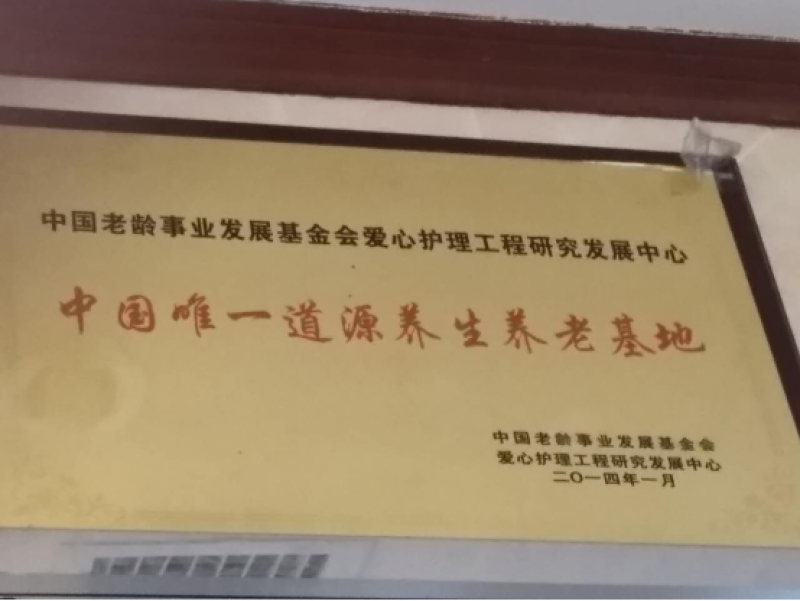 中国老龄事业发展基金会爱心护理工程研究发展中心
中国唯一道源养生养老基地
中国老龄事业发展基金会
爱心护理工程研究发展中心
二〇一四年一月